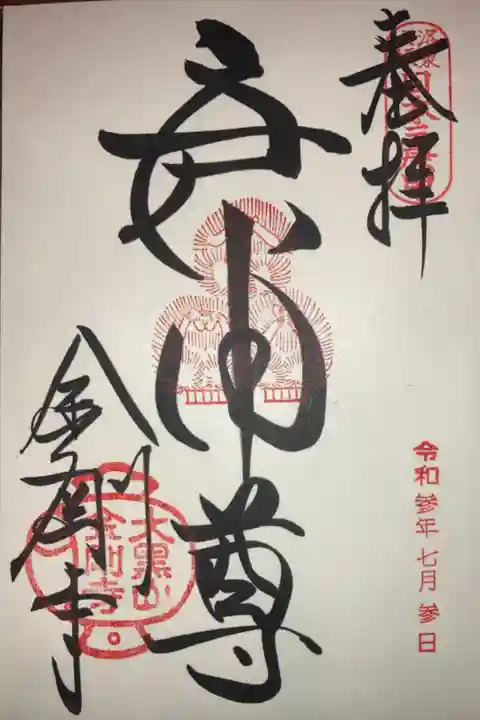 奉拝
庚申尊
金剛寺
大黒山
金剛寺
令和参年七月参日